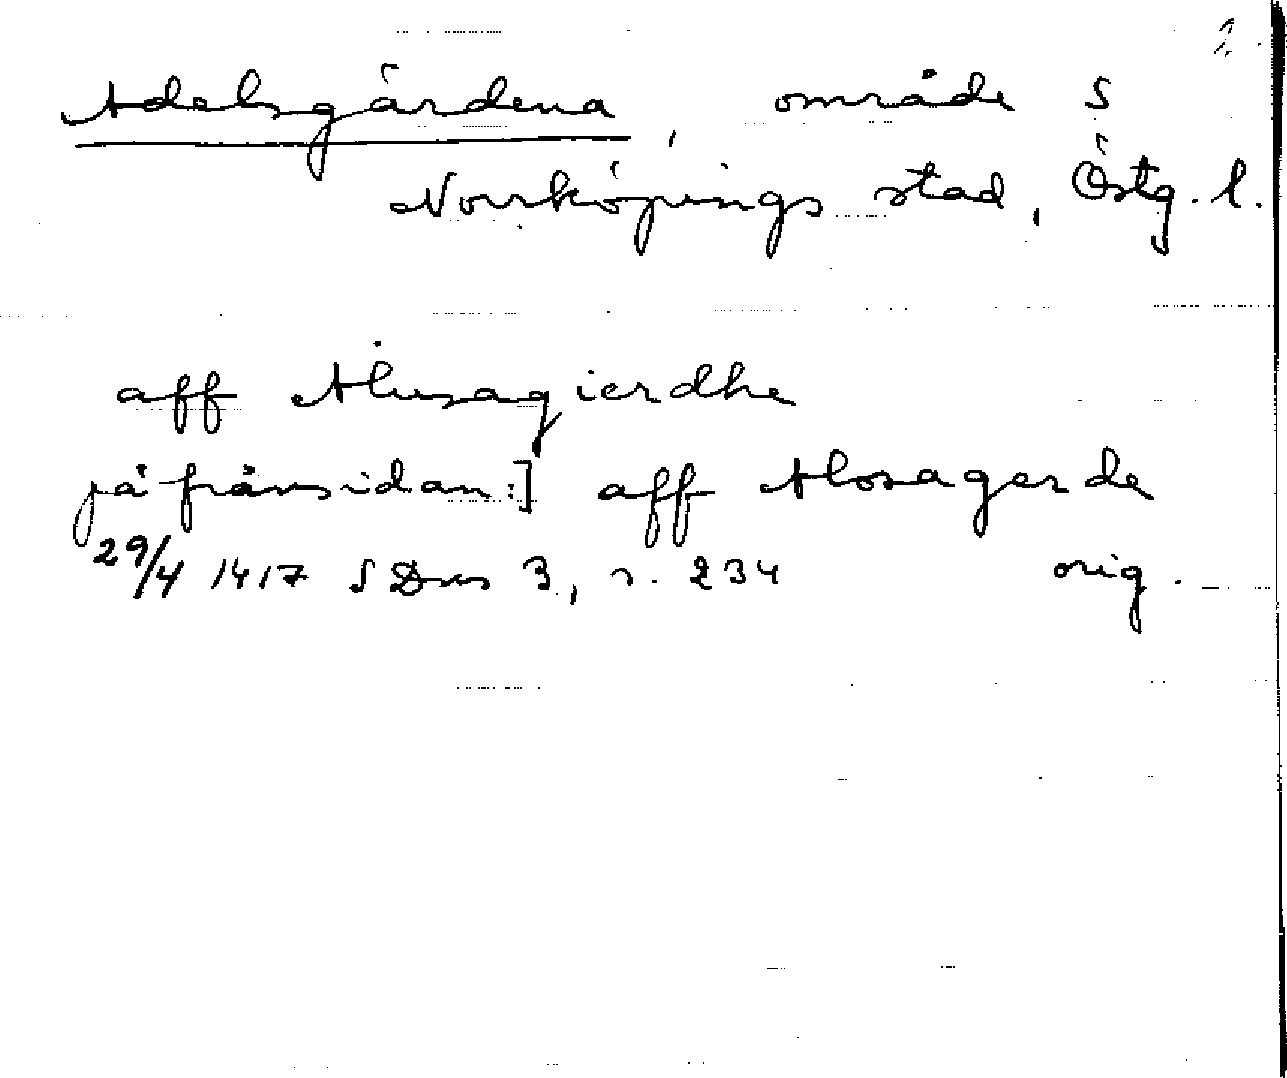 2.
Adelsgärdena, område S
Norrköpings stad, Östg. l.
aff Alusagierdhe
på frånsidan:] aff Alosagerde
29/4 1417 SDns 3, s. 234 orig.